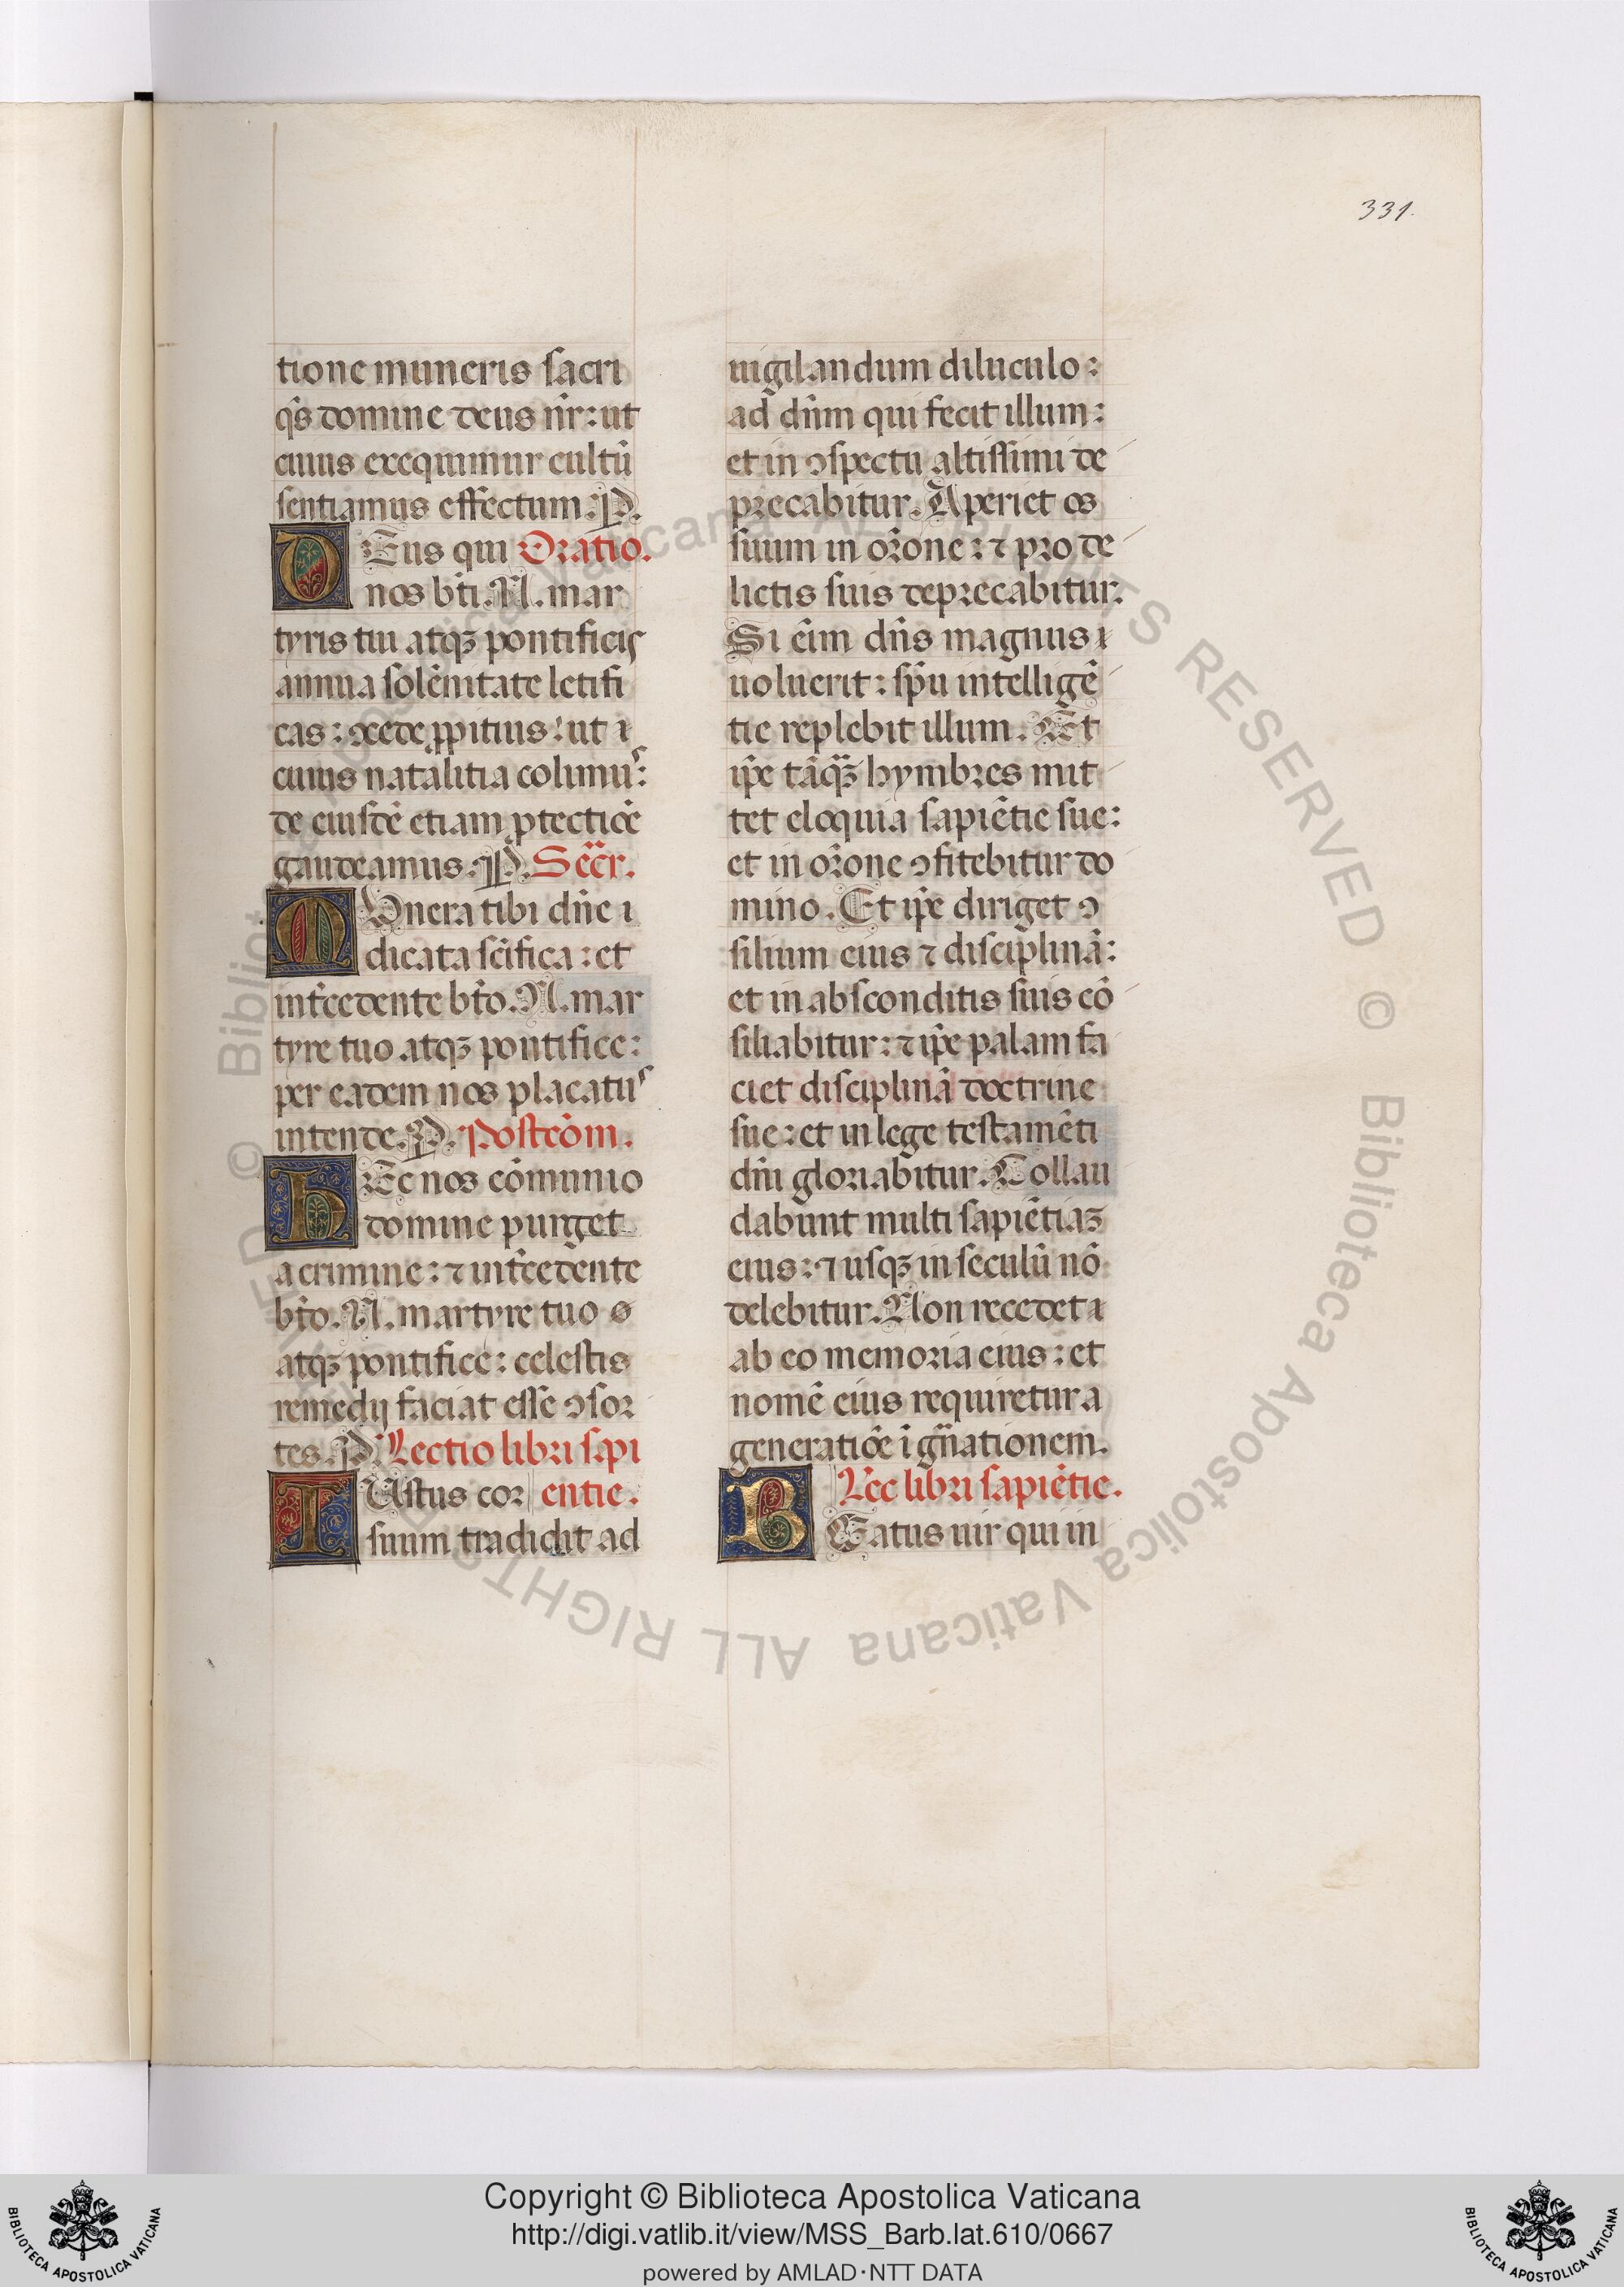 331.
tione muneris sacri
q̄s domine deus n̄r: ut
cuius exequimur cultū
sentiamus effectum. P.
DEus qui Oratio.
nos bt̄i. N. mar
tyris tui atqꝫ pontificis
annua solēnitate letifi
cas: ꝯcede ꝓpitius: ut i
cuius natalitia colimus:
de eiusdē etiam ꝓtectiōe
gaudeamus. P. Secr̄.
MUnera tibi dn̄e i
dicata sc̄ifica: et
int̄cedente bt̄o. N. mar
tyre tuo atqꝫ pontifice:
per eadem nos placatus
intende. P. Postcōm.
HEc nos cōmunio
domine purget
a crimine: ⁊ int̄cedente
bt̄o. N. martyre tuo
atqꝫ pontifice: celestis
remedij faciat esse ꝯsor
tes. P. Lectio libri sapi
IUstus cor entie.
suum tradidit ad
uigilandum diluculo:
ad dn̄m qui fecit illum:
et in ꝯspectu altissimi de
precabitur. Aperiet os
suum in or̄one: ⁊ pro de
lictis suis deprecabitur.
Si ēim dn̄s magnus
uoluerit: sp̄u intelligē
tie replebit illum. Et
ip̄e tāqꝫ hymbres mit
tet eloquia sapiētie sue:
et in or̄one ꝯfitebitur do
mino. Et ip̄e diriget ꝯ
silium eius ⁊ disciplinā:
et in absconditis suis cō
siliabitur: ⁊ ip̄e palam fa
ciet disciplinā doctrine
sue: et in lege testamēti
dn̄i gloriabitur. Collau
dabunt multi sapiētiaꝫ
eius: ⁊ usqꝫ in seculū nō
delebitur. Non recedet
ab eo memoria eius: et
nomē eius requiretur a
generatiōe ī gn̄ationem.
Lec̄ libri sapiētie.
BEatus uir qui in
© Biblioteca Apostolica Vaticana ALL RIGHTS RESERVED © Biblioteca Apostolica Vaticana ALL RIGHTS RESERVED
Copyright © Biblioteca Apostolica Vaticana
http://digi.vatlib.it/view/MSS_Barb.lat.610/0667
powered by AMLAD·NTT DATA
BIBLIOTECA APOSTOLICA VATICANA
BIBLIOTECA APOSTOLICA VATICANA